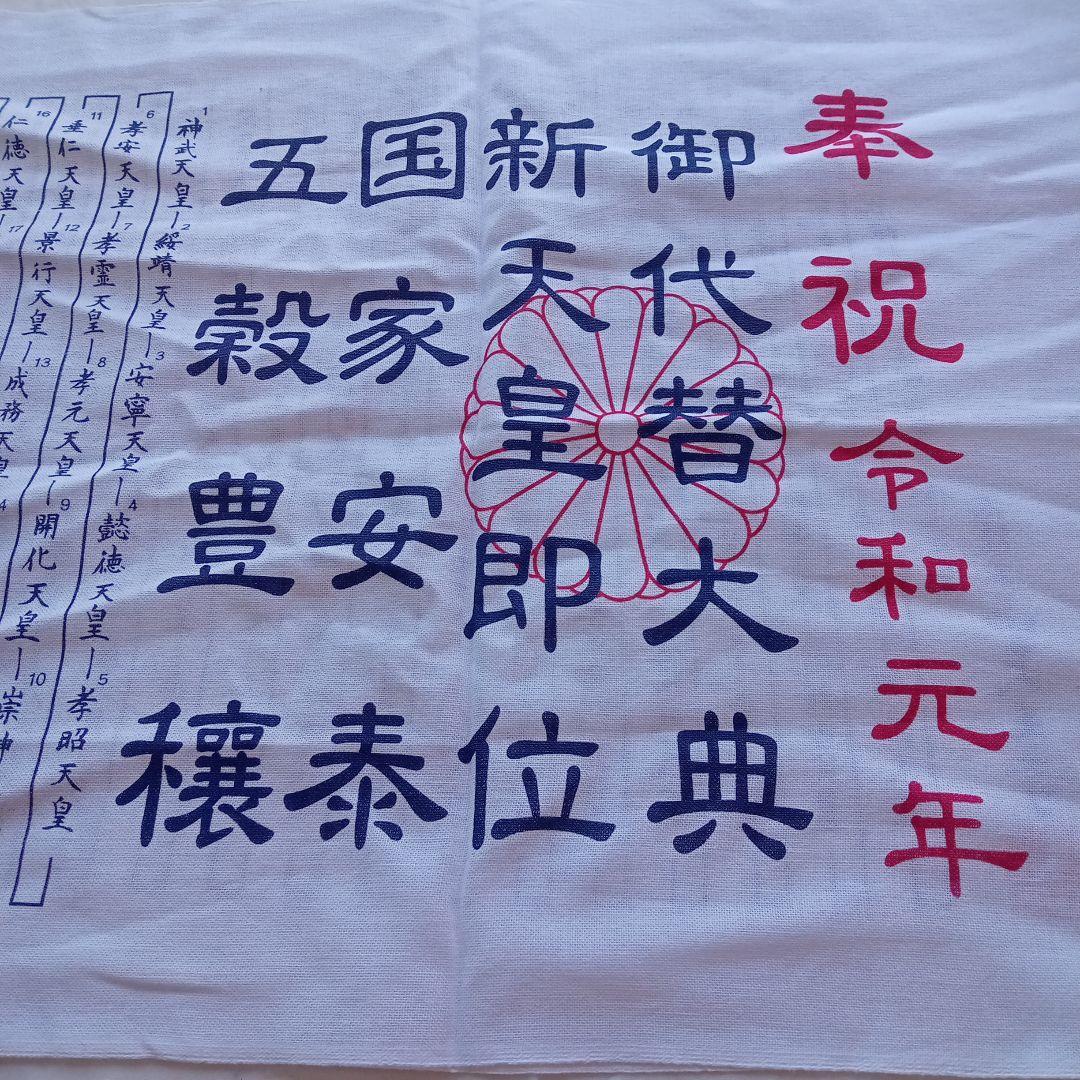 奉祝令和元年
御代替大典
新天皇即位
国家安泰
五穀豊穣
1神武天皇―2綏靖天皇―3安寧天皇―4懿徳天皇―5孝昭天皇
6孝安天皇―7孝霊天皇―8孝元天皇―9開化天皇―10崇神
11垂仁天皇―12景行天皇―13成務天皇
16仁徳天皇―17